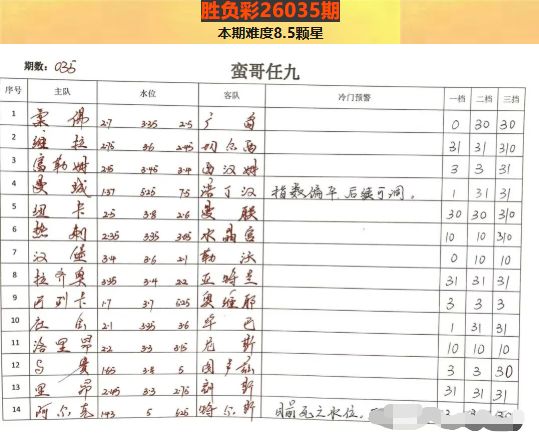 胜负彩26035期
本期难度8.5颗星
期数: 035 蛮哥任九
序号 主队 水位 客队 冷门预警 一档 二档 三档
1 莱佛 2.7 3.35 2.5 广 0 30 30
2 维拉 2.75 3.6 2.45 切尔西 31 31 310
3 富勒姆 2.15 3.45 3.4 西汉姆 3 3 31
4 曼城 1.37 5.25 7.5 诺丁汉 指数偏平后续可调。 1 31 31
5 纽卡 2.5 3.8 2.6 曼联 30 30 310
6 热刺 2.35 3.35 3.05 水晶宫 10 10 310
7 汉堡 3.4 3.6 2.1 勒沃 0 10 10
8 拉齐奥 3.35 3.4 2.2 亚特兰 31 31 31
9 阿列卡 1.7 3.7 5.25 奥维耶 3 3 3
10 左 2.1 3.35 3.6 毕巴 1 31 31
11 洛里昂 2.2 3.3 3.15 尼斯 10 10 10
12 马赛 1.65 3.8 5 图卢兹 3 3 30
13 里昂 2.45 3.3 2.75 朗斯 31 31 31
14 阿尔克 1.43 5 5.25 特尔斯 水位, 3 3 30